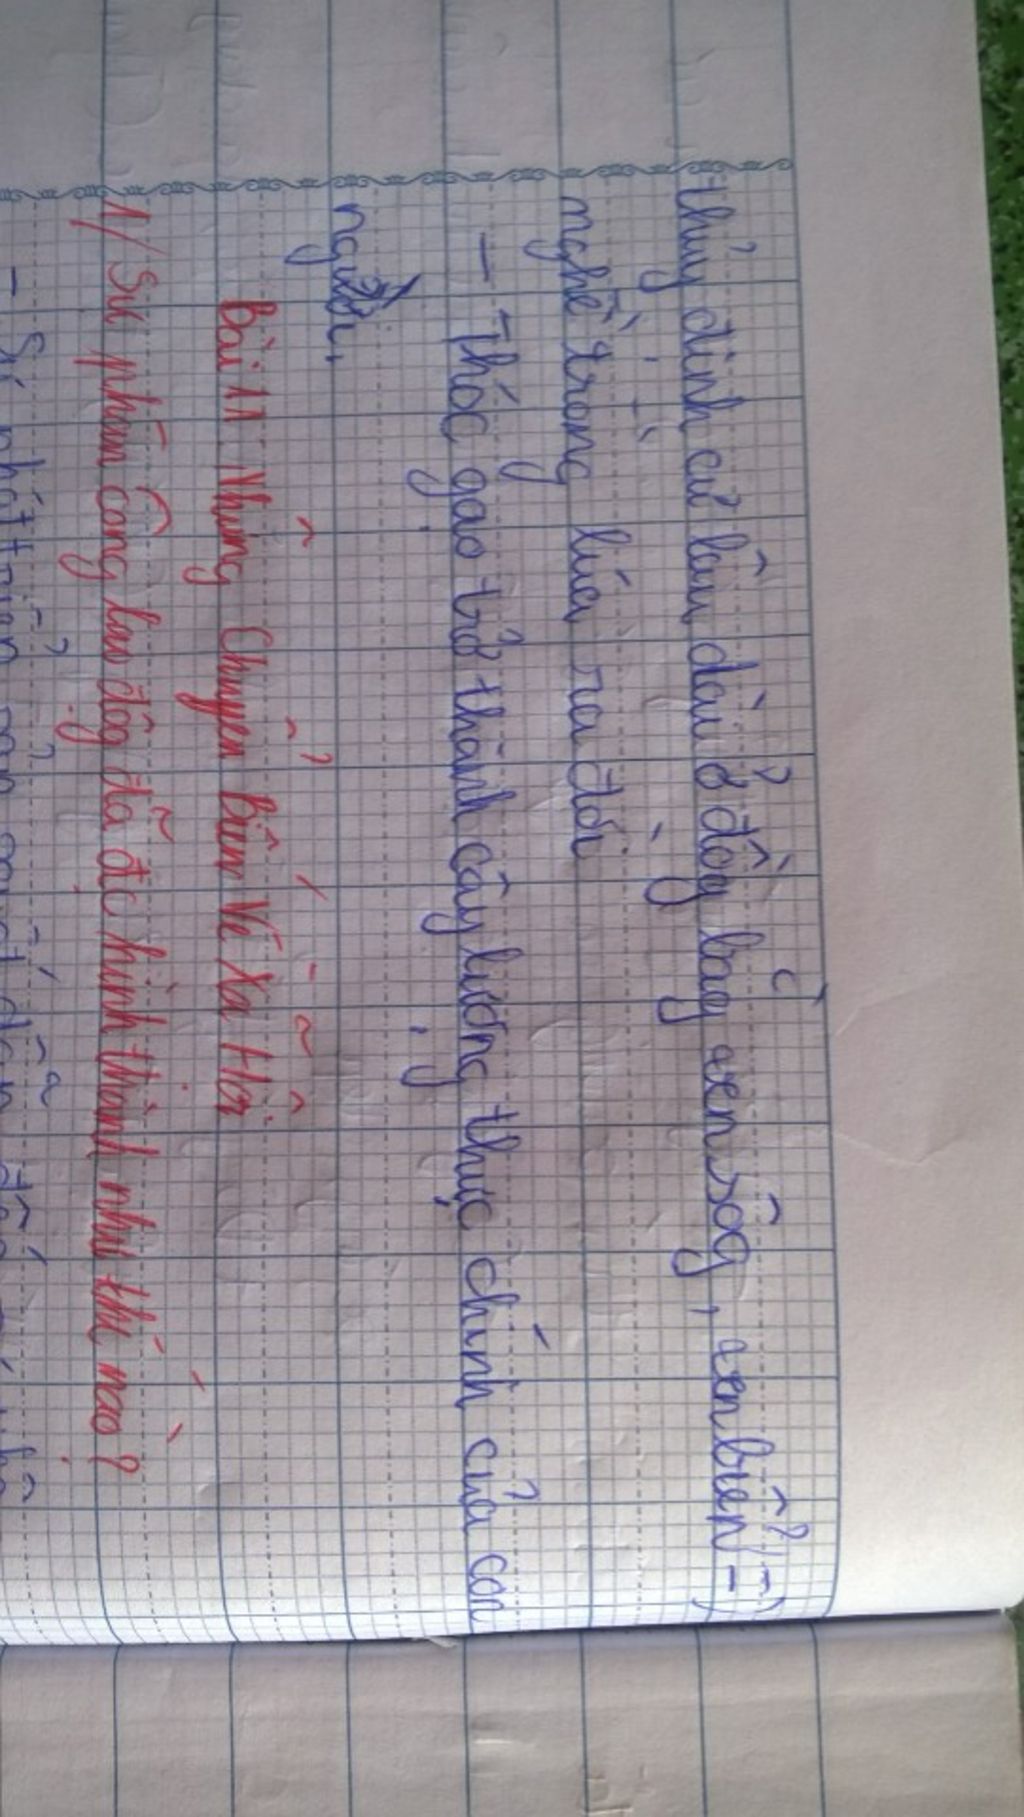 thủy định cư lâu dài ở đồg bằg ven sôg, ven biển =)
nghề trồng lúa ra đời
- Thóc gạo trở thành cây lương thực chính của con
người.
Bài 11 Những Chuyển Biến Về Xã Hội
1/ Sự phâm công lao độg đã đc hình thành như thế nào?
- Sự phát triển sản xuất dẫn đến